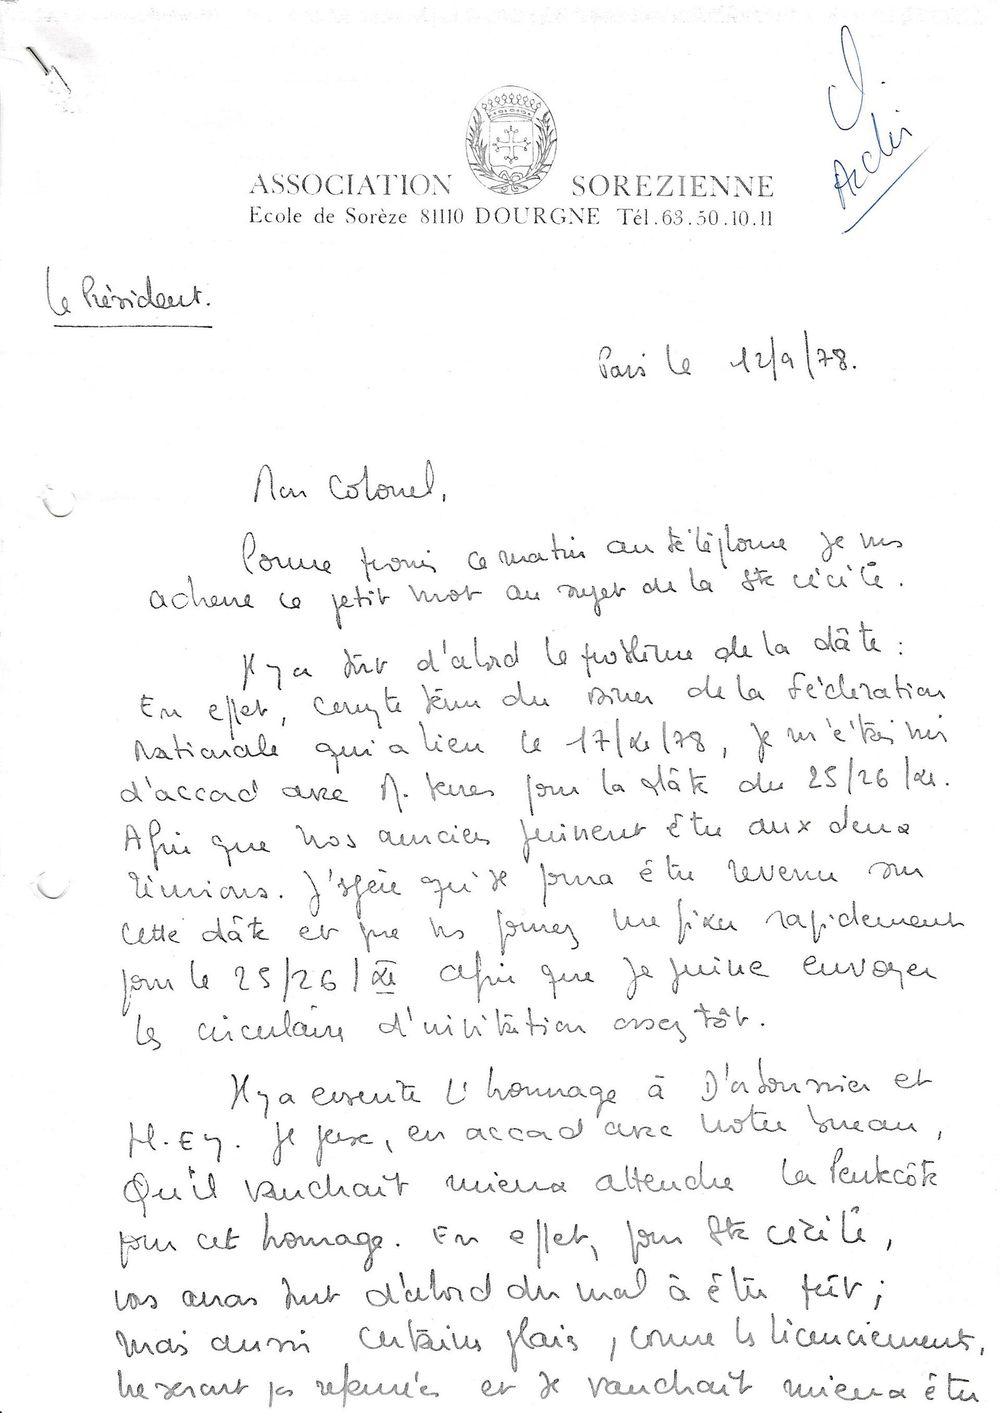 Cl.
ASSOCIATION SOREZIENNE
Ecole de Sorèze 81110 DOURGNE Tél.63.50.10.11
Le Président.
Paris le 12/9/78.
Mon Colonel,
Comme promis ce matin au téléphone je vous
adresse ce petit mot au sujet de la Ste Cécile.
Il y a tout d'abord le problème de la dâte :
En effet, compte tenu du diner de la Fédération
Nationale qui a lieu le 17/XI/78, je m'étais mis
d'accord avec M. pour la dâte du 25/26/XI.
Afin que nos anciens puissent être aux deux
réunions. J'espère qu'il pourra être revenu sur
cette dâte et que vous pourrez me fixer rapidement
pour le 25/26/XI afin que je puisse envoyer
les circulaires d'invitation assez tôt.
Il y a ensuite l'hommage à D'arboussier et
H. Ey. Je pense, en accord avec notre bureau,
Qu'il vaudrait mieux attendre la Pentecôte
pour cet homage. En effet, pour Ste Cécile,
nous avons tout d'abord du mal à être prêt ;
mais aussi certaines plaies, comme les licenciements,
ne seront pas refermées et il vaudrait mieux être